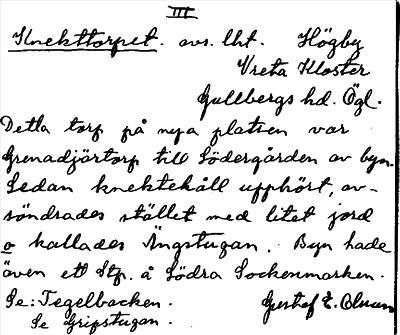 III
Knekttorpet. avs. lht. Högby
Vreta Kloster
Gullbergs hd. Ögl.
Detta torp på nya platsen var
Grenadjärtorp till Södergården av byn.
Sedan knektehåll upphört, av-
söndrades stället med litet jord
o kallades Ängstugan. Byn hade
även ett Stp. å Södra Sockenmarken.
Se: Tegelbacken. Gustaf E. Olsson
Se Gripstugan.